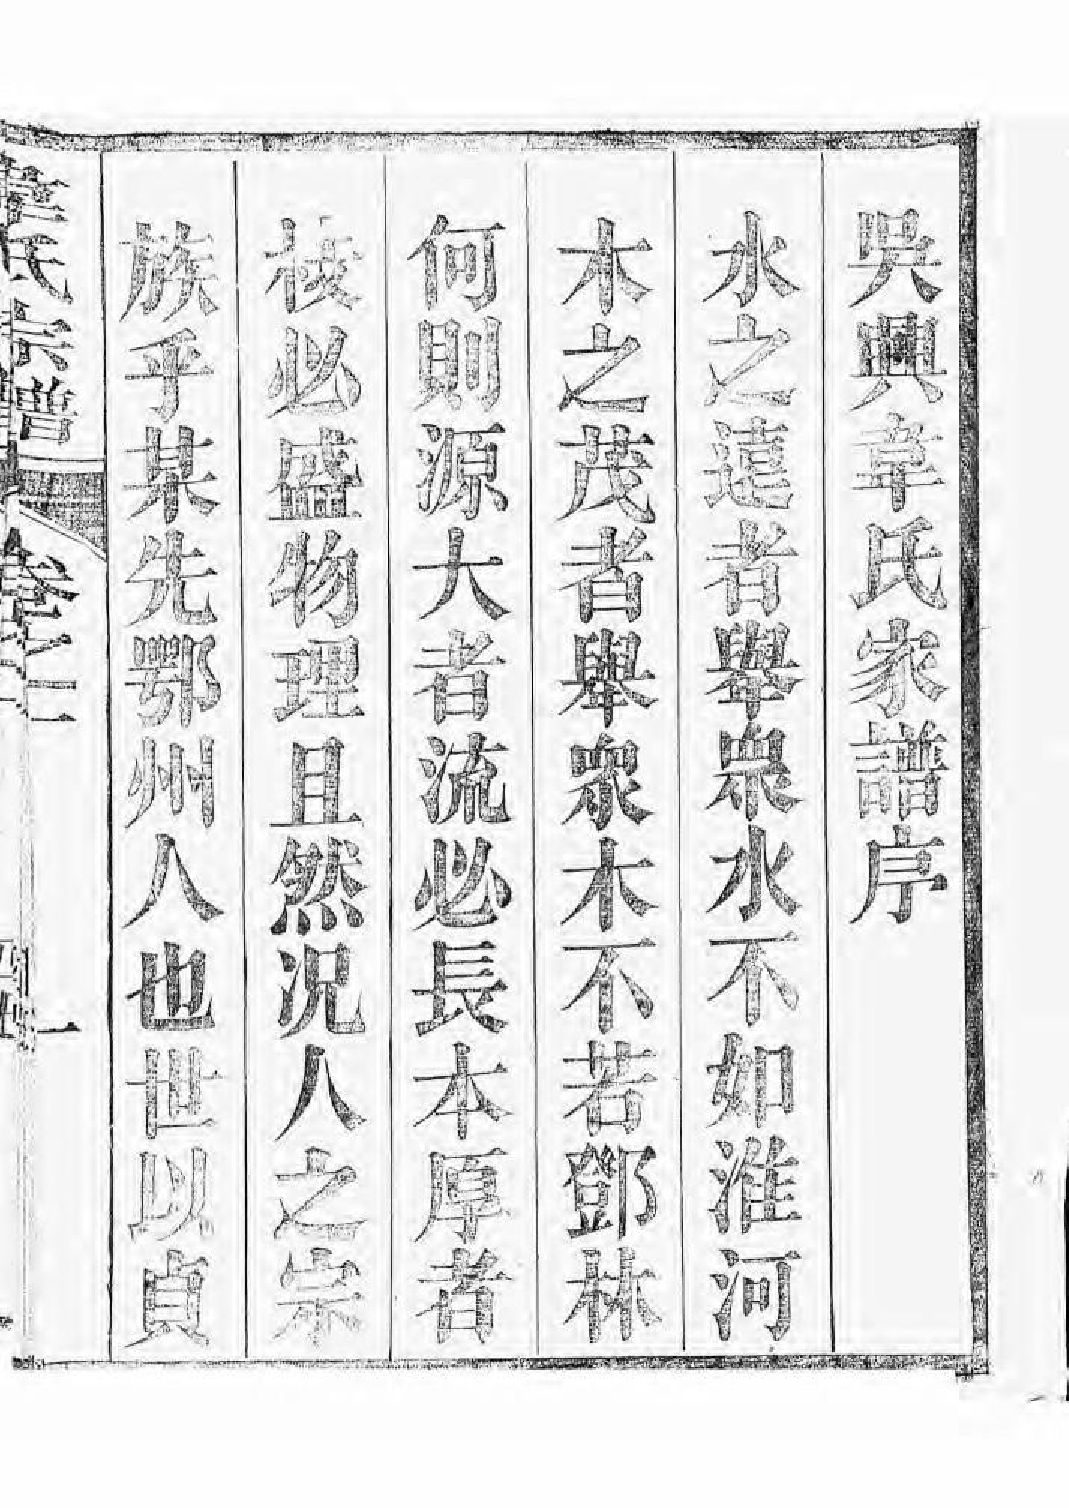 吳興章氏家譜序
水之遠者舉衆水不如淮河
木之茂者舉衆木不若鄧林
何則源大者流必長本厚者
枝必盛物理且然况人之宗
族乎某先鄂州人也世以貞
章氏宗譜 卷之二